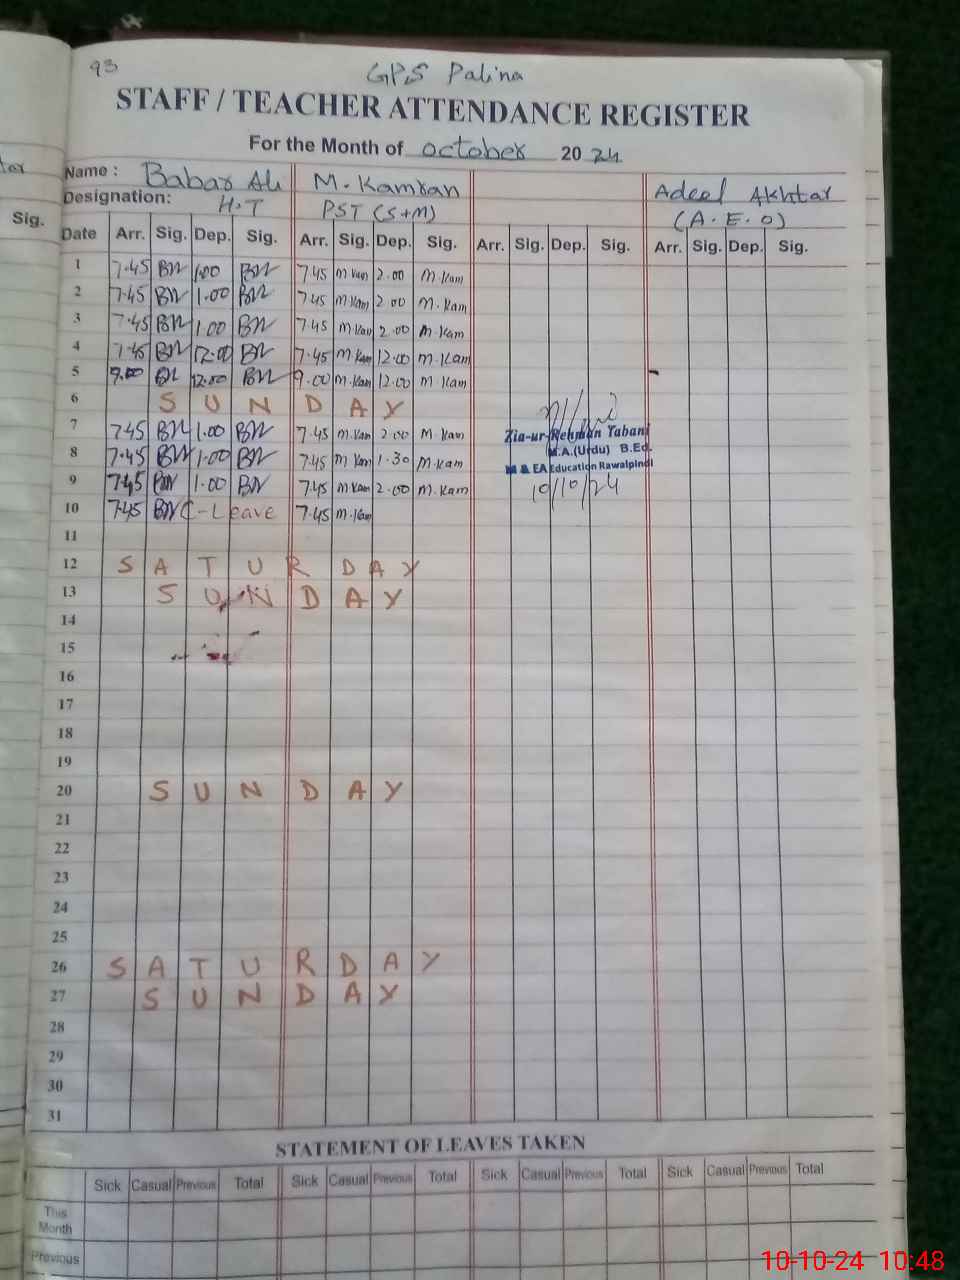 93
GPS Palina
STAFF / TEACHER ATTENDANCE REGISTER
For the Month of October 2024
Name : Babar Ali M. Kamran Adeel Akhtar
Designation: H.T PST (S+M) (A.E.O)
Sig.
Date Arr. Sig. Dep. Sig. Arr. Sig. Dep. Sig. Arr. Sig. Dep. Sig. Arr. Sig. Dep. Sig.
1 7.45 1.00 7.45 M.Kam 2.00 M.Kam
2 7.45 1.00 7.45 M.Kam 2.00 M.Kam
3 7.45 1.00 7.45 M.Kam 2.00 M.Kam
4 7.45 12.00 7.45 M.Kam 12.00 M.Kam
5 9.00 12.00 9.00 M.Kam 12.00 M.Kam
6 SUNDAY
7 7.45 1.00 7.45 M.Kam 2.00 M.Kam
Zia-ur-Rehman Tabani
8 7.45 1.00 7.45 M.Kam 1.30 M.Kam
M.A.(Urdu) B.Ed.
M & EA Education Rawalpindi
9 7.45 1.00 7.45 M.Kam 2.00 M.Kam
10/10/24
10 7.45 C-Leave 7.45 M.Kam
11
12 SATURDAY
13 SUNDAY
14
15
16
17
18
19
20 SUNDAY
21
22
23
24
25
26 SATURDAY
27 SUNDAY
28
29
30
31
STATEMENT OF LEAVES TAKEN
Sick Casual Previous Total Sick Casual Previous Total Sick Casual Previous Total Sick Casual Previous Total
This
Month
Previous
10-10-24 10:48